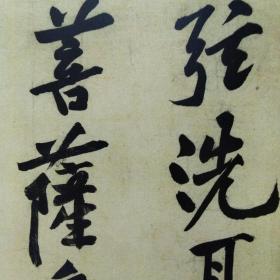 弦洗耳
菩薩